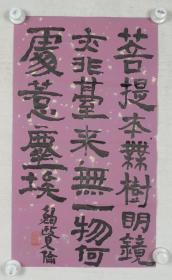 菩提本無樹明鏡
亦非臺来無一物何
處惹塵埃